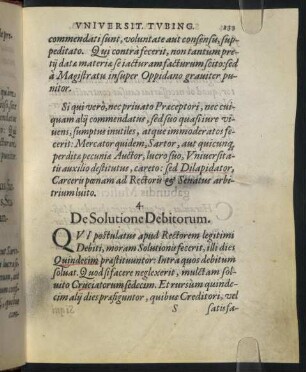 VNIVERSIT. TVBING.
commendati sunt, voluntate aut consensu, sup-
peditato. Qui contrà fecerit, non tantum pre-
tij data materiæ se iacturam facturum scito: sed
à Magistratu insuper Oppidano grauiter pu-
nitor.
Si qui verò, nec priuato Præceptori, nec cui-
quam alij commendatus, sed suo quasi iure vi-
uens, sumptus inutiles, atque immoderatos fe-
cerit: Mercator quidem, Sartor, aut quicunq;
perdita pecuniæ Auctor, lucro suo, Vniuersita-
tis auxilio destitutus, careto: sed Dilapidator,
Carceris pœnam ad Rectoris & Senatus arbi-
trium luito.
4.
De Solutione Debitorum.
QVI postulatus apud Rectorem legitimi
Debiti, moram Solutionis fecerit, illi dies
Quindecim præstituuntor: Intra quos debitum
soluat. Quod si facere neglexerit, mulctam sol-
uito Cruciatorum sedecim. Et rursum quinde-
cim alij dies præfiguntor, quibus Creditori, vel
S satisfa-